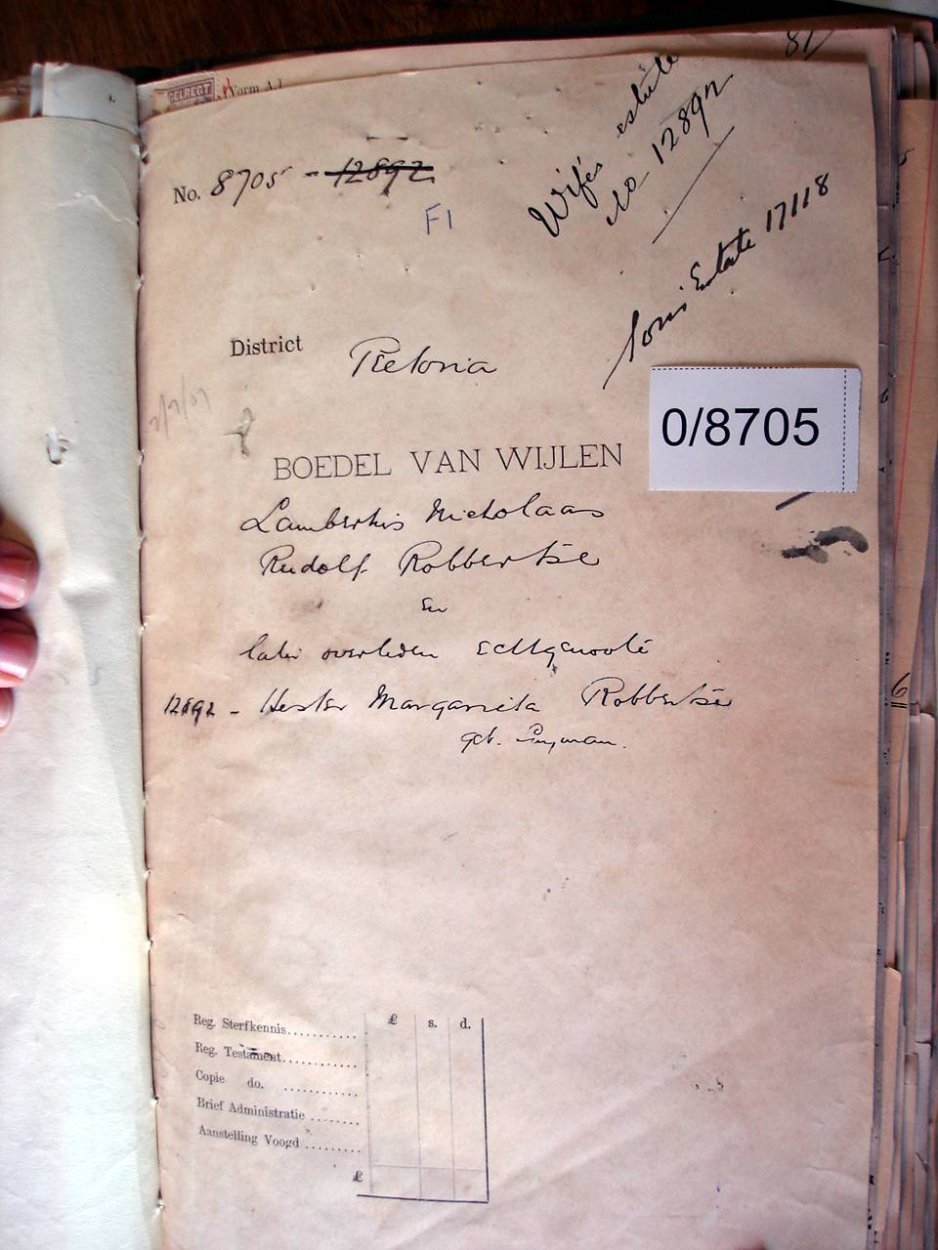 81
Form A.1
No. 8705 - 12892
F1
Wife's estate
No 12892
Sons Estate 17118
District Pretoria
0/8705
BOEDEL VAN WIJLEN
Lambertus Nicholaas
Rudolf Robbertse
En
later overleden Echtgenoote
12892 - Hester Margarieta Robbertse
geb. Snyman.
£ s. d.
Reg. Sterfkennis..............
Reg. Testament..............
Copie do. ..............
Brief Administratie ........
Aanstelling Voogd .........
£
6